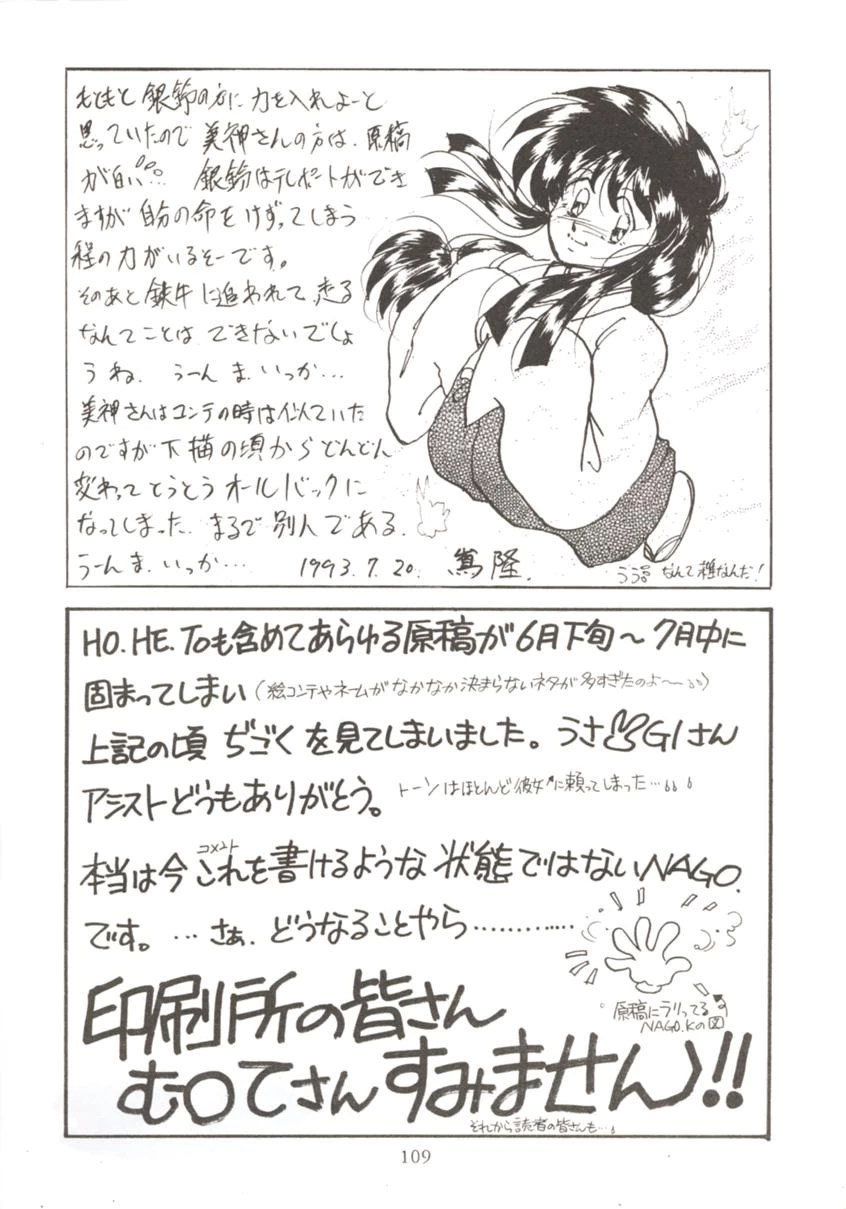 もともと 銀鈴の方に 力を入れよーと
思っていたので 美神さんの方は、原稿
が白い… 銀鈴はテレポートができ
ますが 自分の命をけずってしまう
程の力がいるそーです。
そのあと 鉄牛に追われて、走る
なんてことは できないでしょ
うね. うーん ま、いっか…
美神さんはコンテの時は似ていた
のですが 下描の頃からどんどん
変わって とうとう オールバックに
なってしまった. まるで 別人である.
うーん ま、いっか…
1993. 7. 20. 嵩 隆.
うう なんて 雑なんだ!
HO. HE. Toも含めてあらゆる原稿が 6月下旬〜7月中に
固まってしまい (絵コンテやネームがなかなか決まらないネタが多すぎたのよ〜)
上記の頃 ぢごく を見てしまいました。 うさGIさん
アシストどうもありがとう。 トーンはほとんど彼女に頼ってしまった…
コメント
本当は今 これを書けるような 状態ではないNAGO.
です。… さぁ. どうなることやら…………
原稿にラリってる
NAGO.Kの図
印刷所の皆さん
む○てさん すみません!!
それから読者の皆さんも…
109